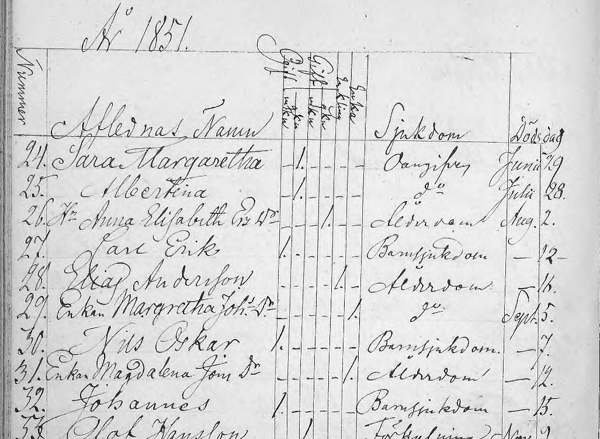 Aº 1851.
Nummer Aflednas Namn Ogift mkn qkn Gift mkn qkn Enkling Enka Sjukdom Dödsdag
24. Sara Margaretha - 1. - - - - Oangifven Junii 29
25. Albertina - 1. - - - - dº Julii 28.
26. Hu. Anna Elisabeth Ers Dr - - - 1. - - Ålderdom Aug. 2.
27. Carl Erik 1. - - - - - Barnsjukdom - 12 -
28. Elias Anderson - - - - 1. - Ålderdom - 16.
29. Enkan Margretha Joh. Dr - - - - - 1. dº Sept. 5.
30. Nils Oskar 1. - - - - - Barnsjukdom. - 7.
31. Enkan Magdalena Jöns Dr - - - - - 1. Ålderdom - 12.
32. Johannes 1. - - - - - Barnsjukdom - 15.
33. Olof Hansson 1. Förkylning Nov. 9.